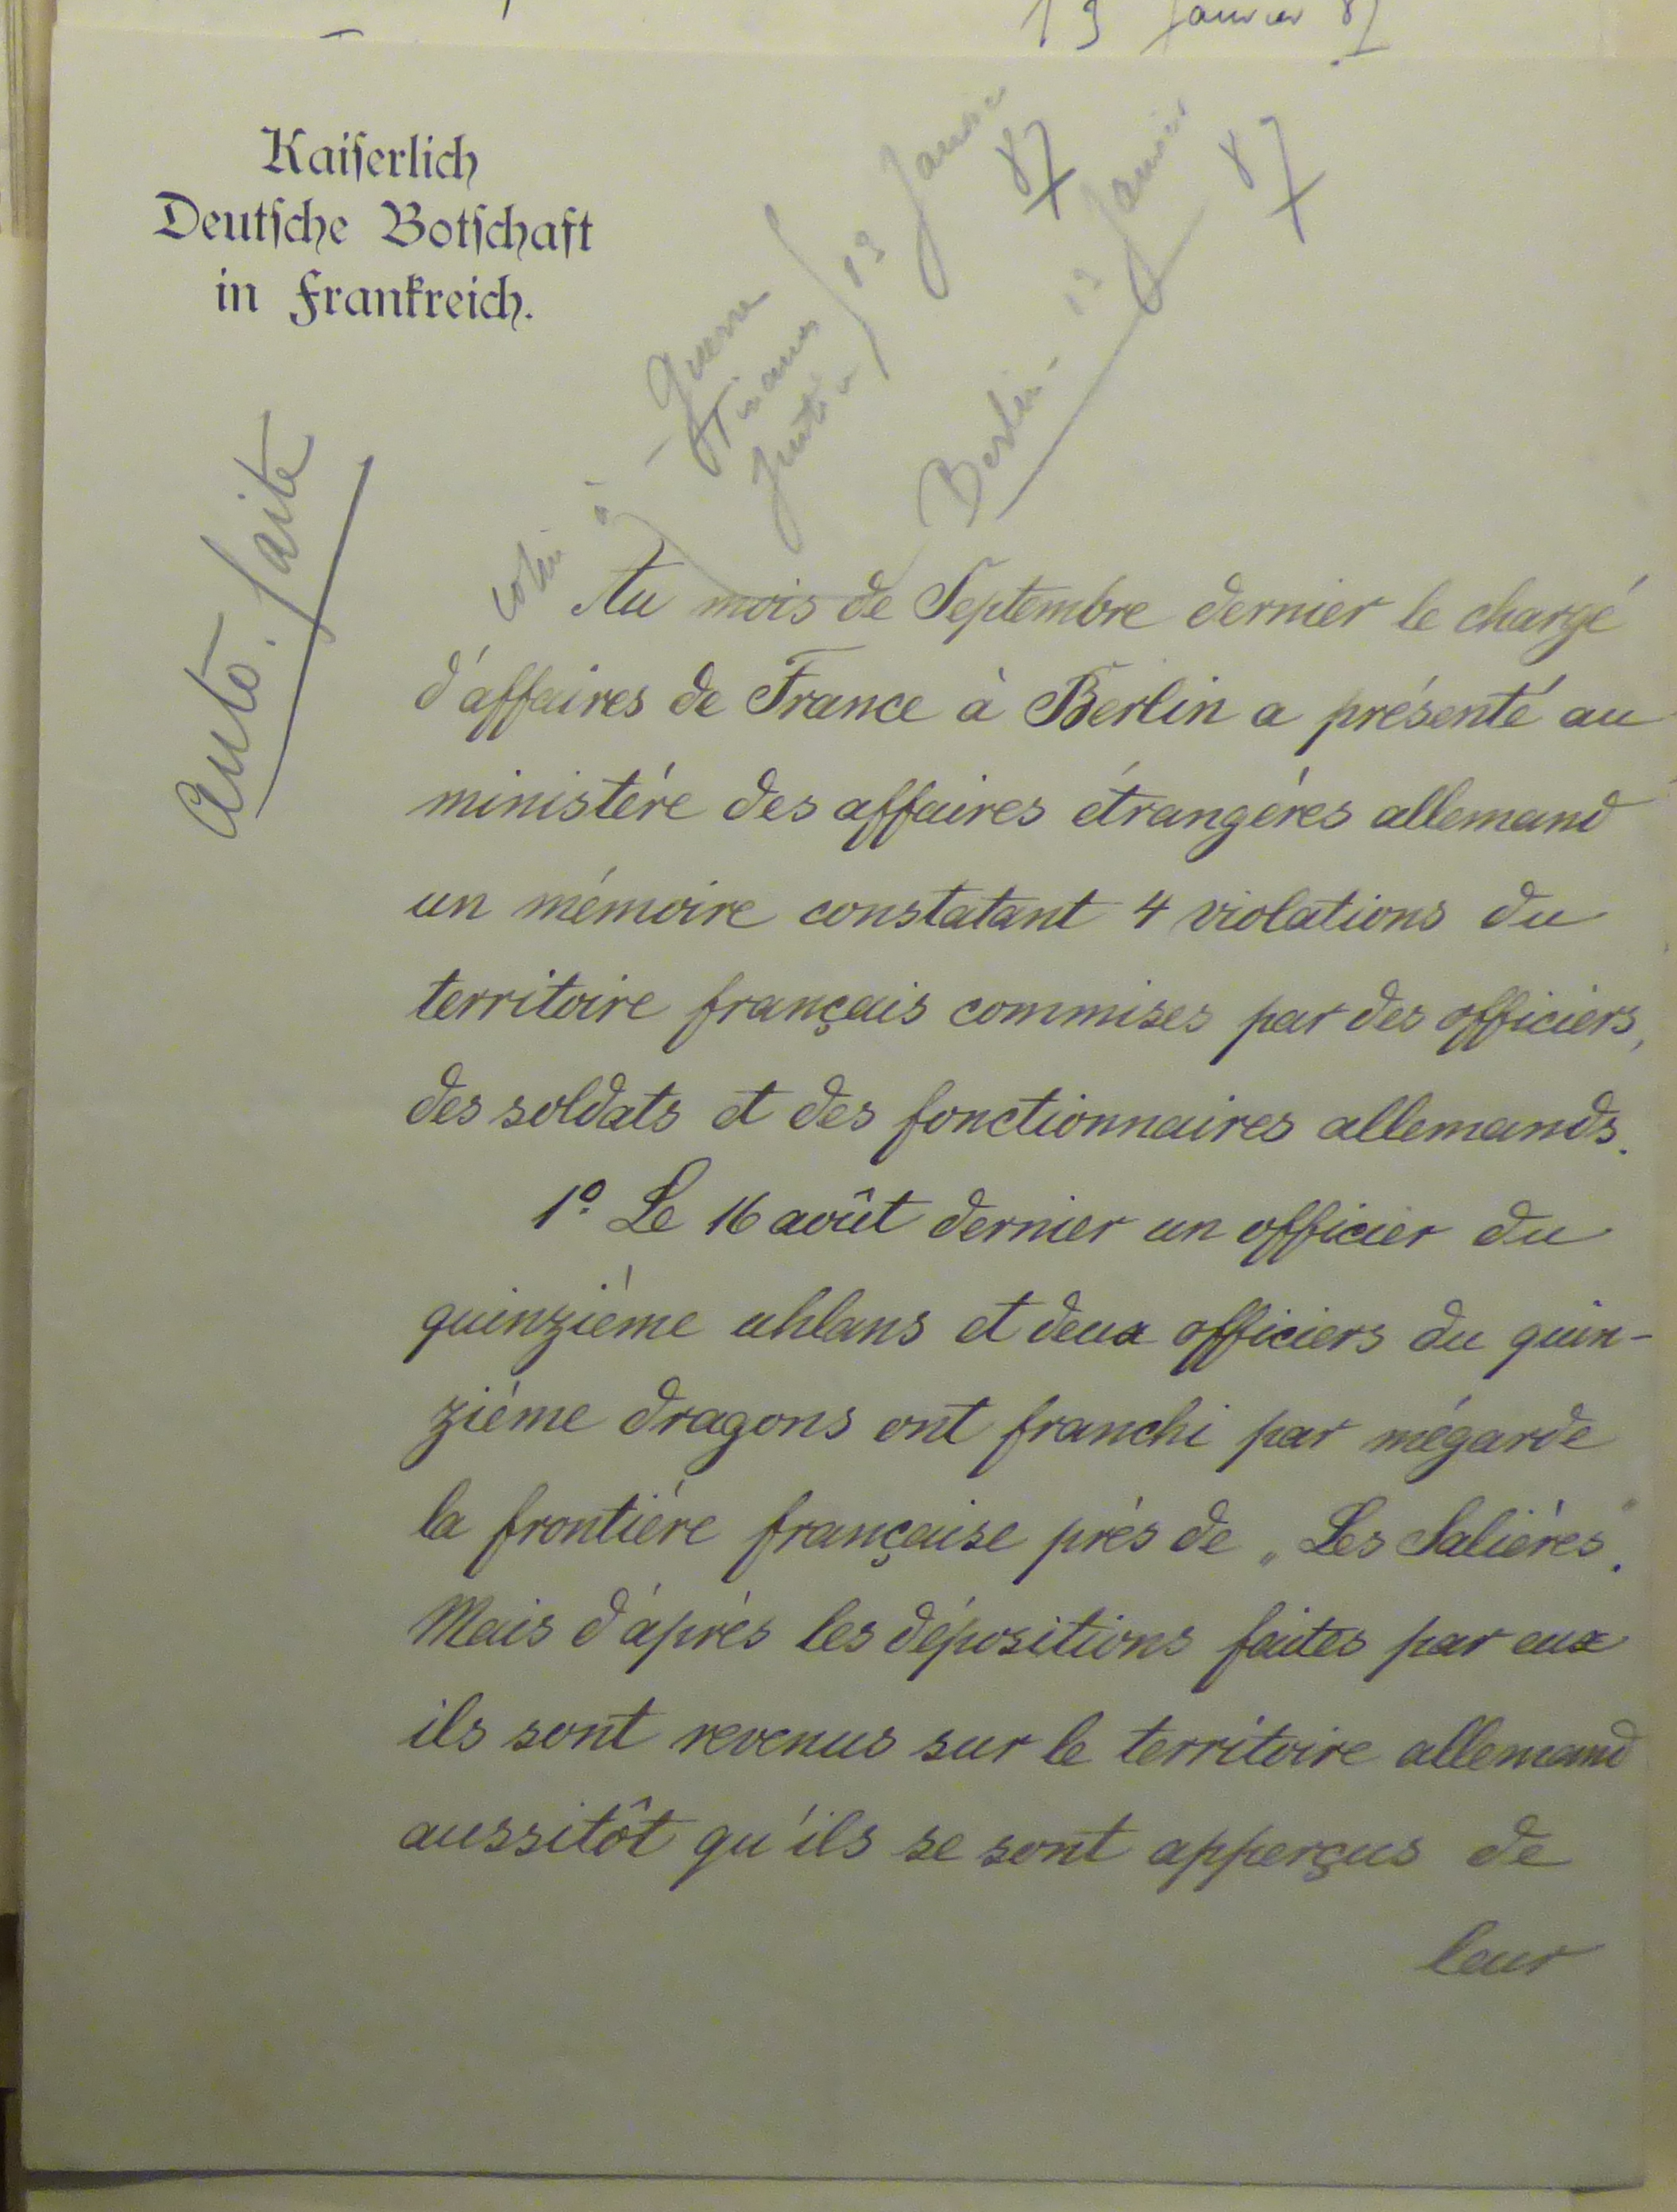 19 Janvier 87
Kaiserlich
Deutsche Botschaft
in Frankreich.
Guerre
Finances
Justice
19 Janvier
87
Berlin - 19 Janvier
87
copie à
auto. faite
Au mois de Septembre dernier le chargé
d'affaires de France à Berlin a présenté au
ministére des affaires étrangéres allemand
un mémoire constatant 4 violations du
territoire français commises par des officiers,
des soldats et des fonctionnaires allemands.
1º. Le 16 août dernier un officier du
quinziéme uhlans et deux officiers du quin-
ziéme dragons ont franchi par mégarde
la frontiére française prés de „Les Saliéres“.
Mais d'áprés les dépositions faites par eux
ils sont revenus sur le territoire allemand
aussitôt qu'ils se sont apperçus de
leur